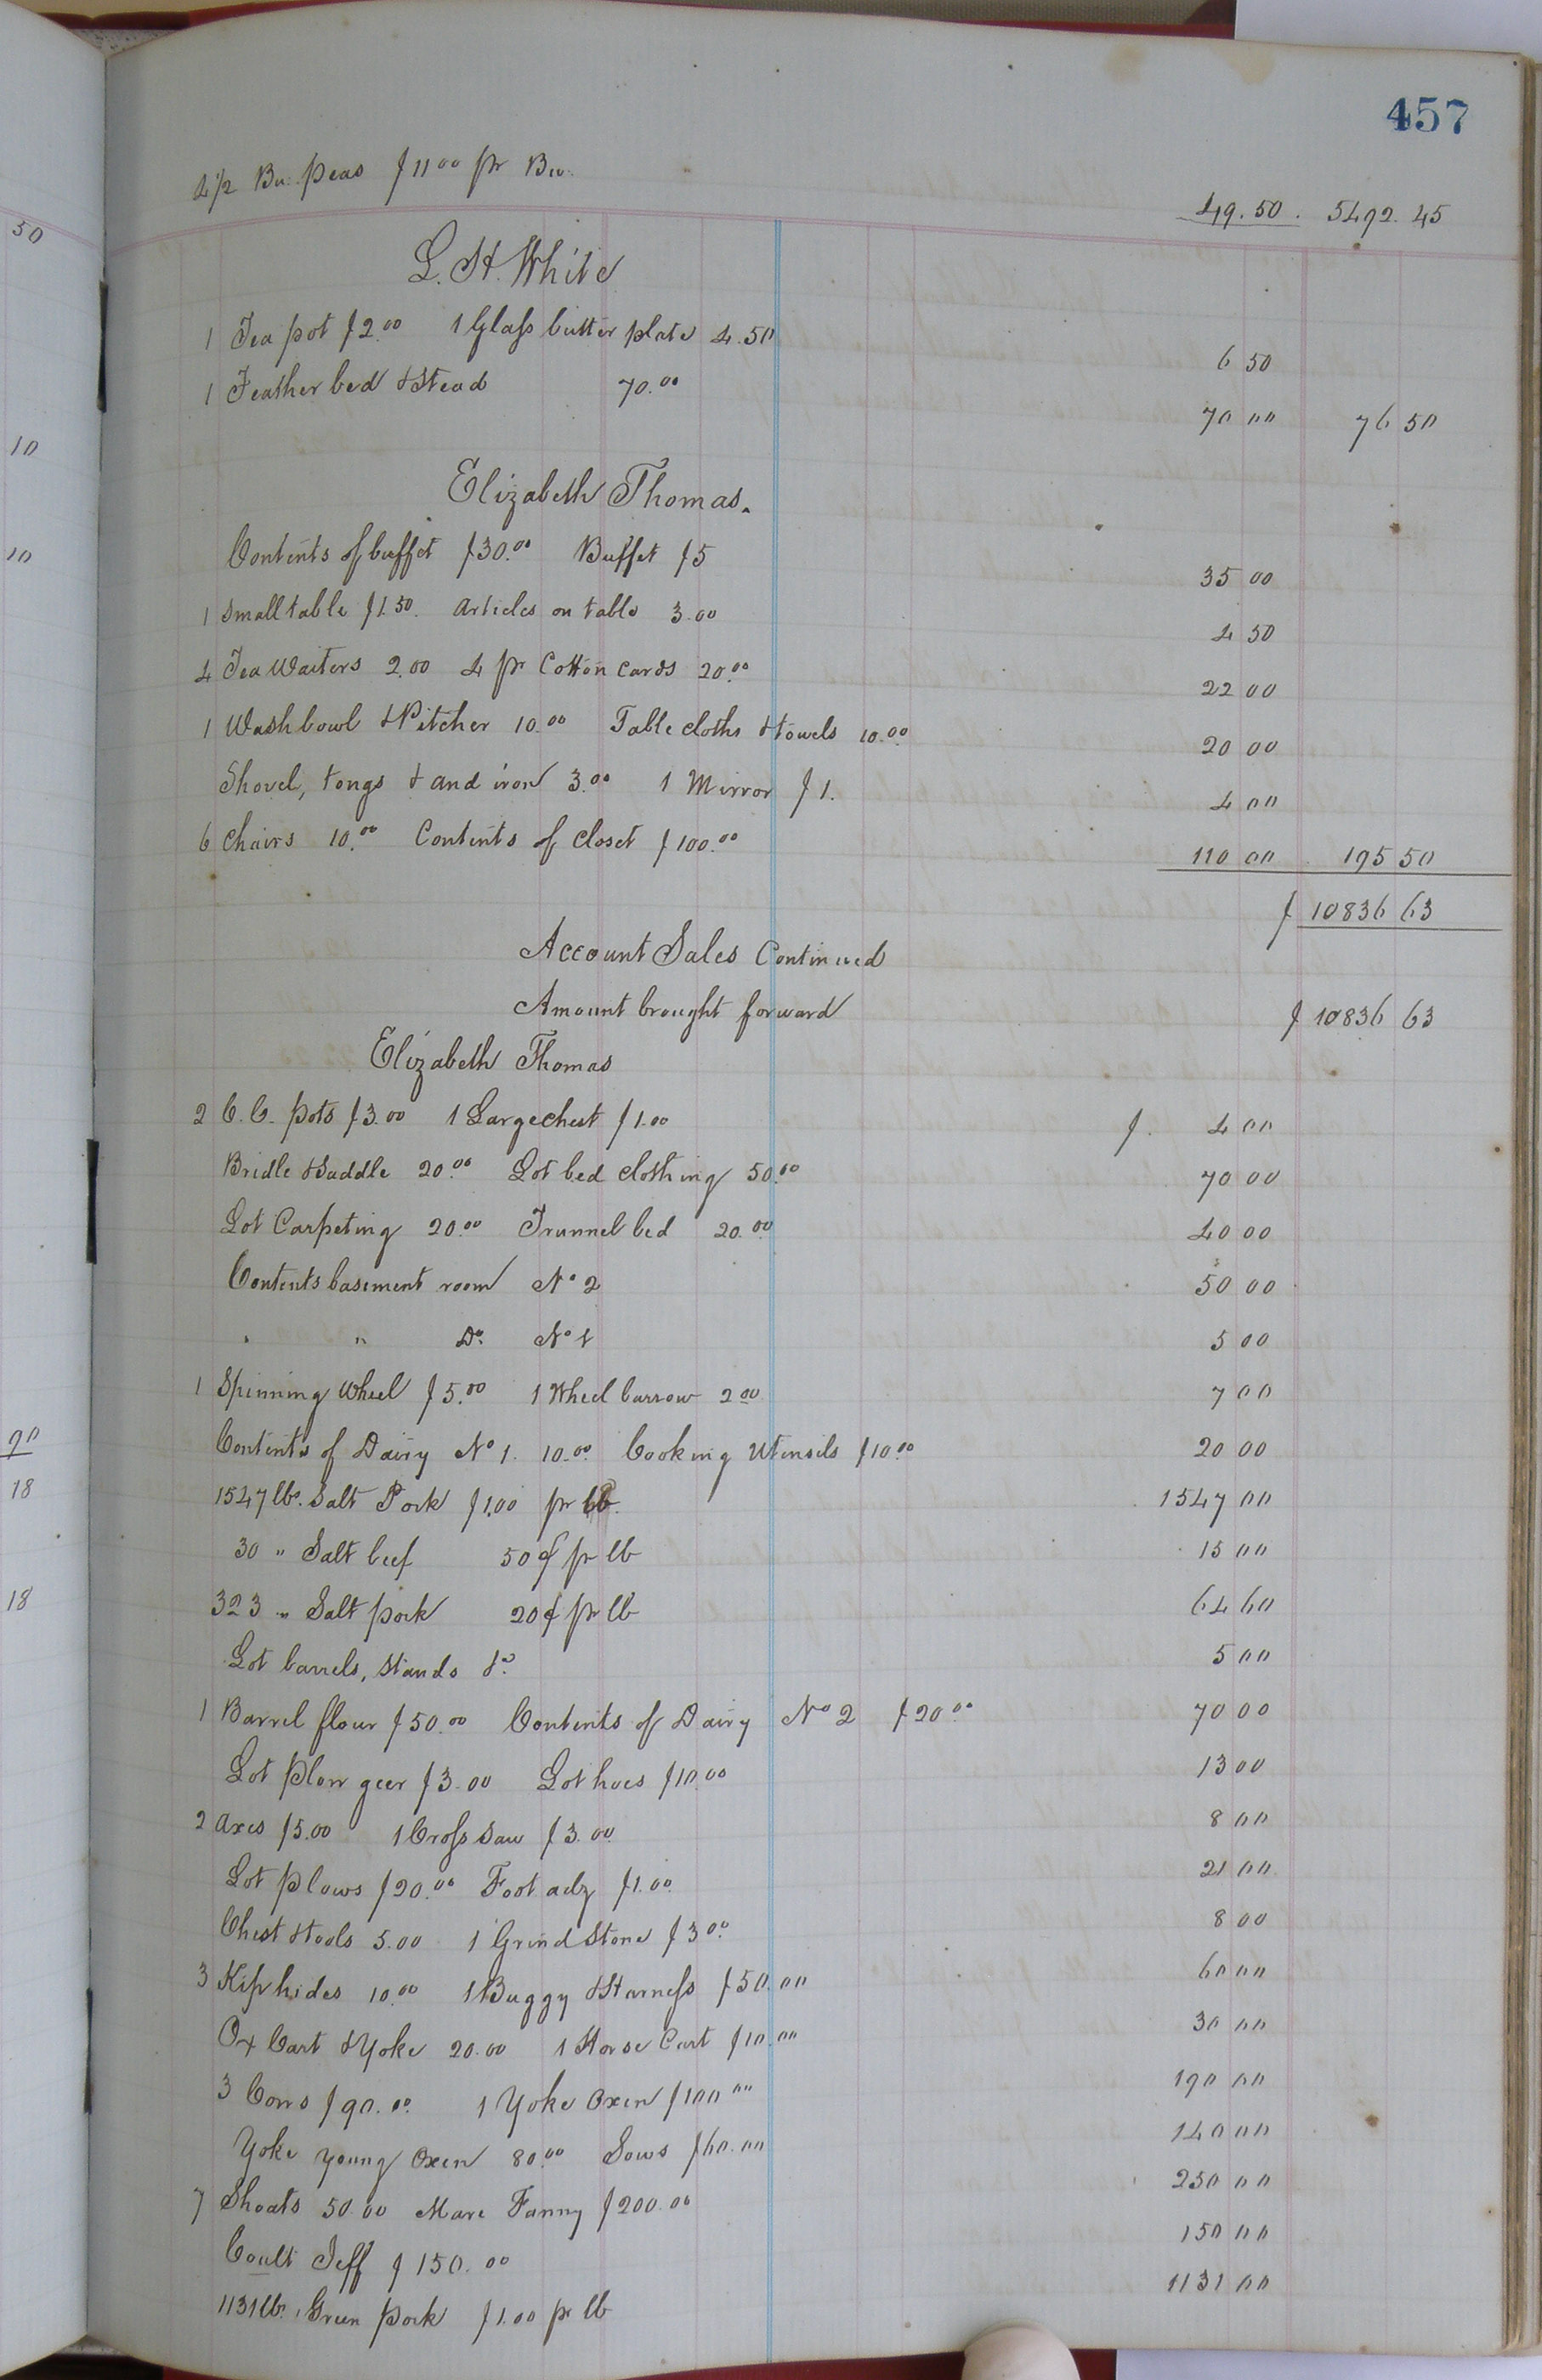 457
4 1/2 Bu. Peas $11.00 pr Bu. 49.50. 5492.45
L. H. White
1 Tea pot $2.00 1 Glass butter plate 4.50 6 50
1 Feather bed & Stead 70.00 70 00 76 50
Elizabeth Thomas.
Contents of buffet $30.00 Buffet $5 35 00
1 Small table $1.50. Articles on table 3.00 4 50
4 Tea Waiters 2.00 4 pr Cotton Cards 20.00 22 00
1 Wash bowl & Pitcher 10.00 Table cloths & towels 10.00 20 00
Shovel, tongs & and iron 3.00 1 Mirror $1. 4 00
6 Chairs 10.00 Contents of Closet $100.00 110 00 195 50
$ 10836 63
Account Sales Continued
Amount brought forward $ 10836 63
Elizabeth Thomas
2 C. C. pots $3.00 1 Large chest $1.00 $. 4 00
Bridle & Saddle 20.00 Lot bed clothing 50.00 70 00
Lot Carpeting 20.00 Trunnel bed 20.00 40 00
Contents basement room No 2 50 00
" " Do. No 1 5 00
1 Spinning Wheel $5.00 1 Wheel barrow 2.00 7 00
Contents of Dairy No 1. 10.00 Cooking Utensils $10.00 20 00
1547 lbs. Salt Pork $1.00 pr lb. 1547 00
30 " Salt beef 50¢ pr lb 15 00
323 " Salt pork 20¢ pr lb 64 60
Lot barrels, stands &c. 5 00
1 Barrel flour $50.00 Contents of Dairy No 2 $20.00 70 00
Lot Plow geer $3.00 Lot hoes $10.00 13 00
2 Axes $5.00 1 Cross Saw $3.00 8 00
Lot Plows $20.00 Foot adz $1.00 21 00
Chest & tools 5.00 1 Grind Stone $3.00 8 00
3 Kip hides 10.00 1 Buggy & Harness $50.00 60 00
Ox Cart & Yoke 20.00 1 Horse Cart $10.00 30 00
3 Cows $90.00 1 Yoke Oxen $100.00 190 00
Yoke young Oxen 80.00 Sows $60.00 140 00
7 Shoats 50.00 Mare Fanny $200.00 250 00
Coult Jeff $150.00 150 00
1131 lbs. Green Pork $1.00 pr lb 1131 00
50
10
10
90
18
18